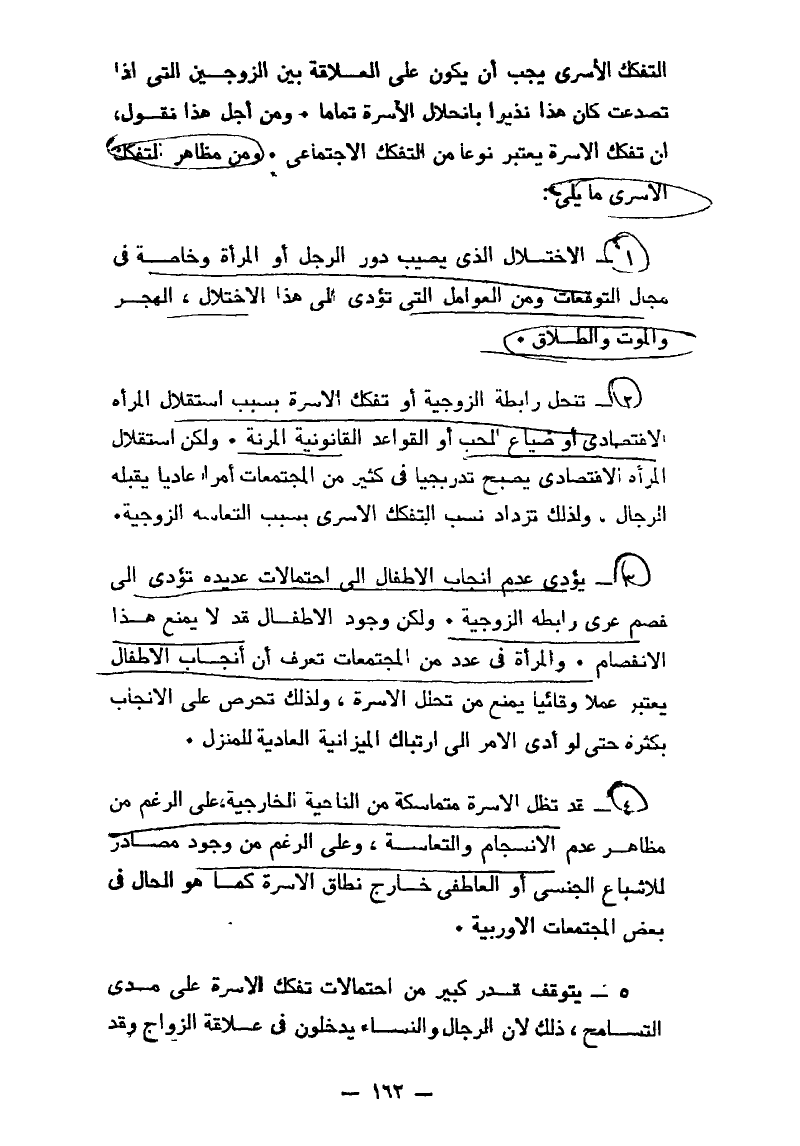 التفكك الأسرى يجب أن يكون على العلاقة بين الزوجين التى اذا
تصدعت كان هذا نذيرا بانحلال الأسرة تماما ٠ ومن أجل هذا نقول،
ان تفكك الاسرة يعتبر نوعا من التفكك الاجتماعى ٠ ومن مظاهر التفكك
الاسرى ما يلى :
١ ـ الاختلال الذى يصيب دور الرجل أو المرأة وخاصة فى
مجال التوقعات ومن العوامل التى تؤدى الى هذا الاختلال ، الهجر
والموت والطلاق ٠
٢ ـ تنحل رابطة الزوجية أو تفكك الاسرة بسبب استقلال المرأه
الاقتصادى أو ضياع الحب أو القواعد القانونية المرنة ٠ ولكن استقلال
المرأه الاقتصادى يصبح تدريجيا فى كثير من المجتمعات أمرا عاديا يقبله
الرجال . ولذلك تزداد نسب التفكك الاسرى بسبب التعاسه الزوجية٠
٣ ـ يؤدى عدم انجاب الاطفال الى احتمالات عديده تؤدى الى
فصم عرى رابطه الزوجية ٠ ولكن وجود الاطفال قد لا يمنع هذا
الانفصام ٠ والمرأة فى عدد من المجتمعات تعرف أن أنجاب الاطفال
يعتبر عملا وقائيا يمنع من تحلل الاسرة ، ولذلك تحرص على الانجاب
بكثره حتى لو أدى الامر الى ارتباك الميزانية العادية للمنزل ٠
٤ ـ قد تظل الاسرة متماسكة من الناحية الخارجية،على الرغم من
مظاهر عدم الانسجام والتعاسة ، وعلى الرغم من وجود مصادر
للاشباع الجنسى أو العاطفى خارج نطاق الاسرة كما هو الحال فى
بعض المجتمعات الاوربية ٠
٥ ـ يتوقف قدر كبير من احتمالات تفكك الاسرة على مدى
التسامح ، ذلك لان الرجال والنساء يدخلون فى علاقة الزواج وقد
— ١٦٢ —